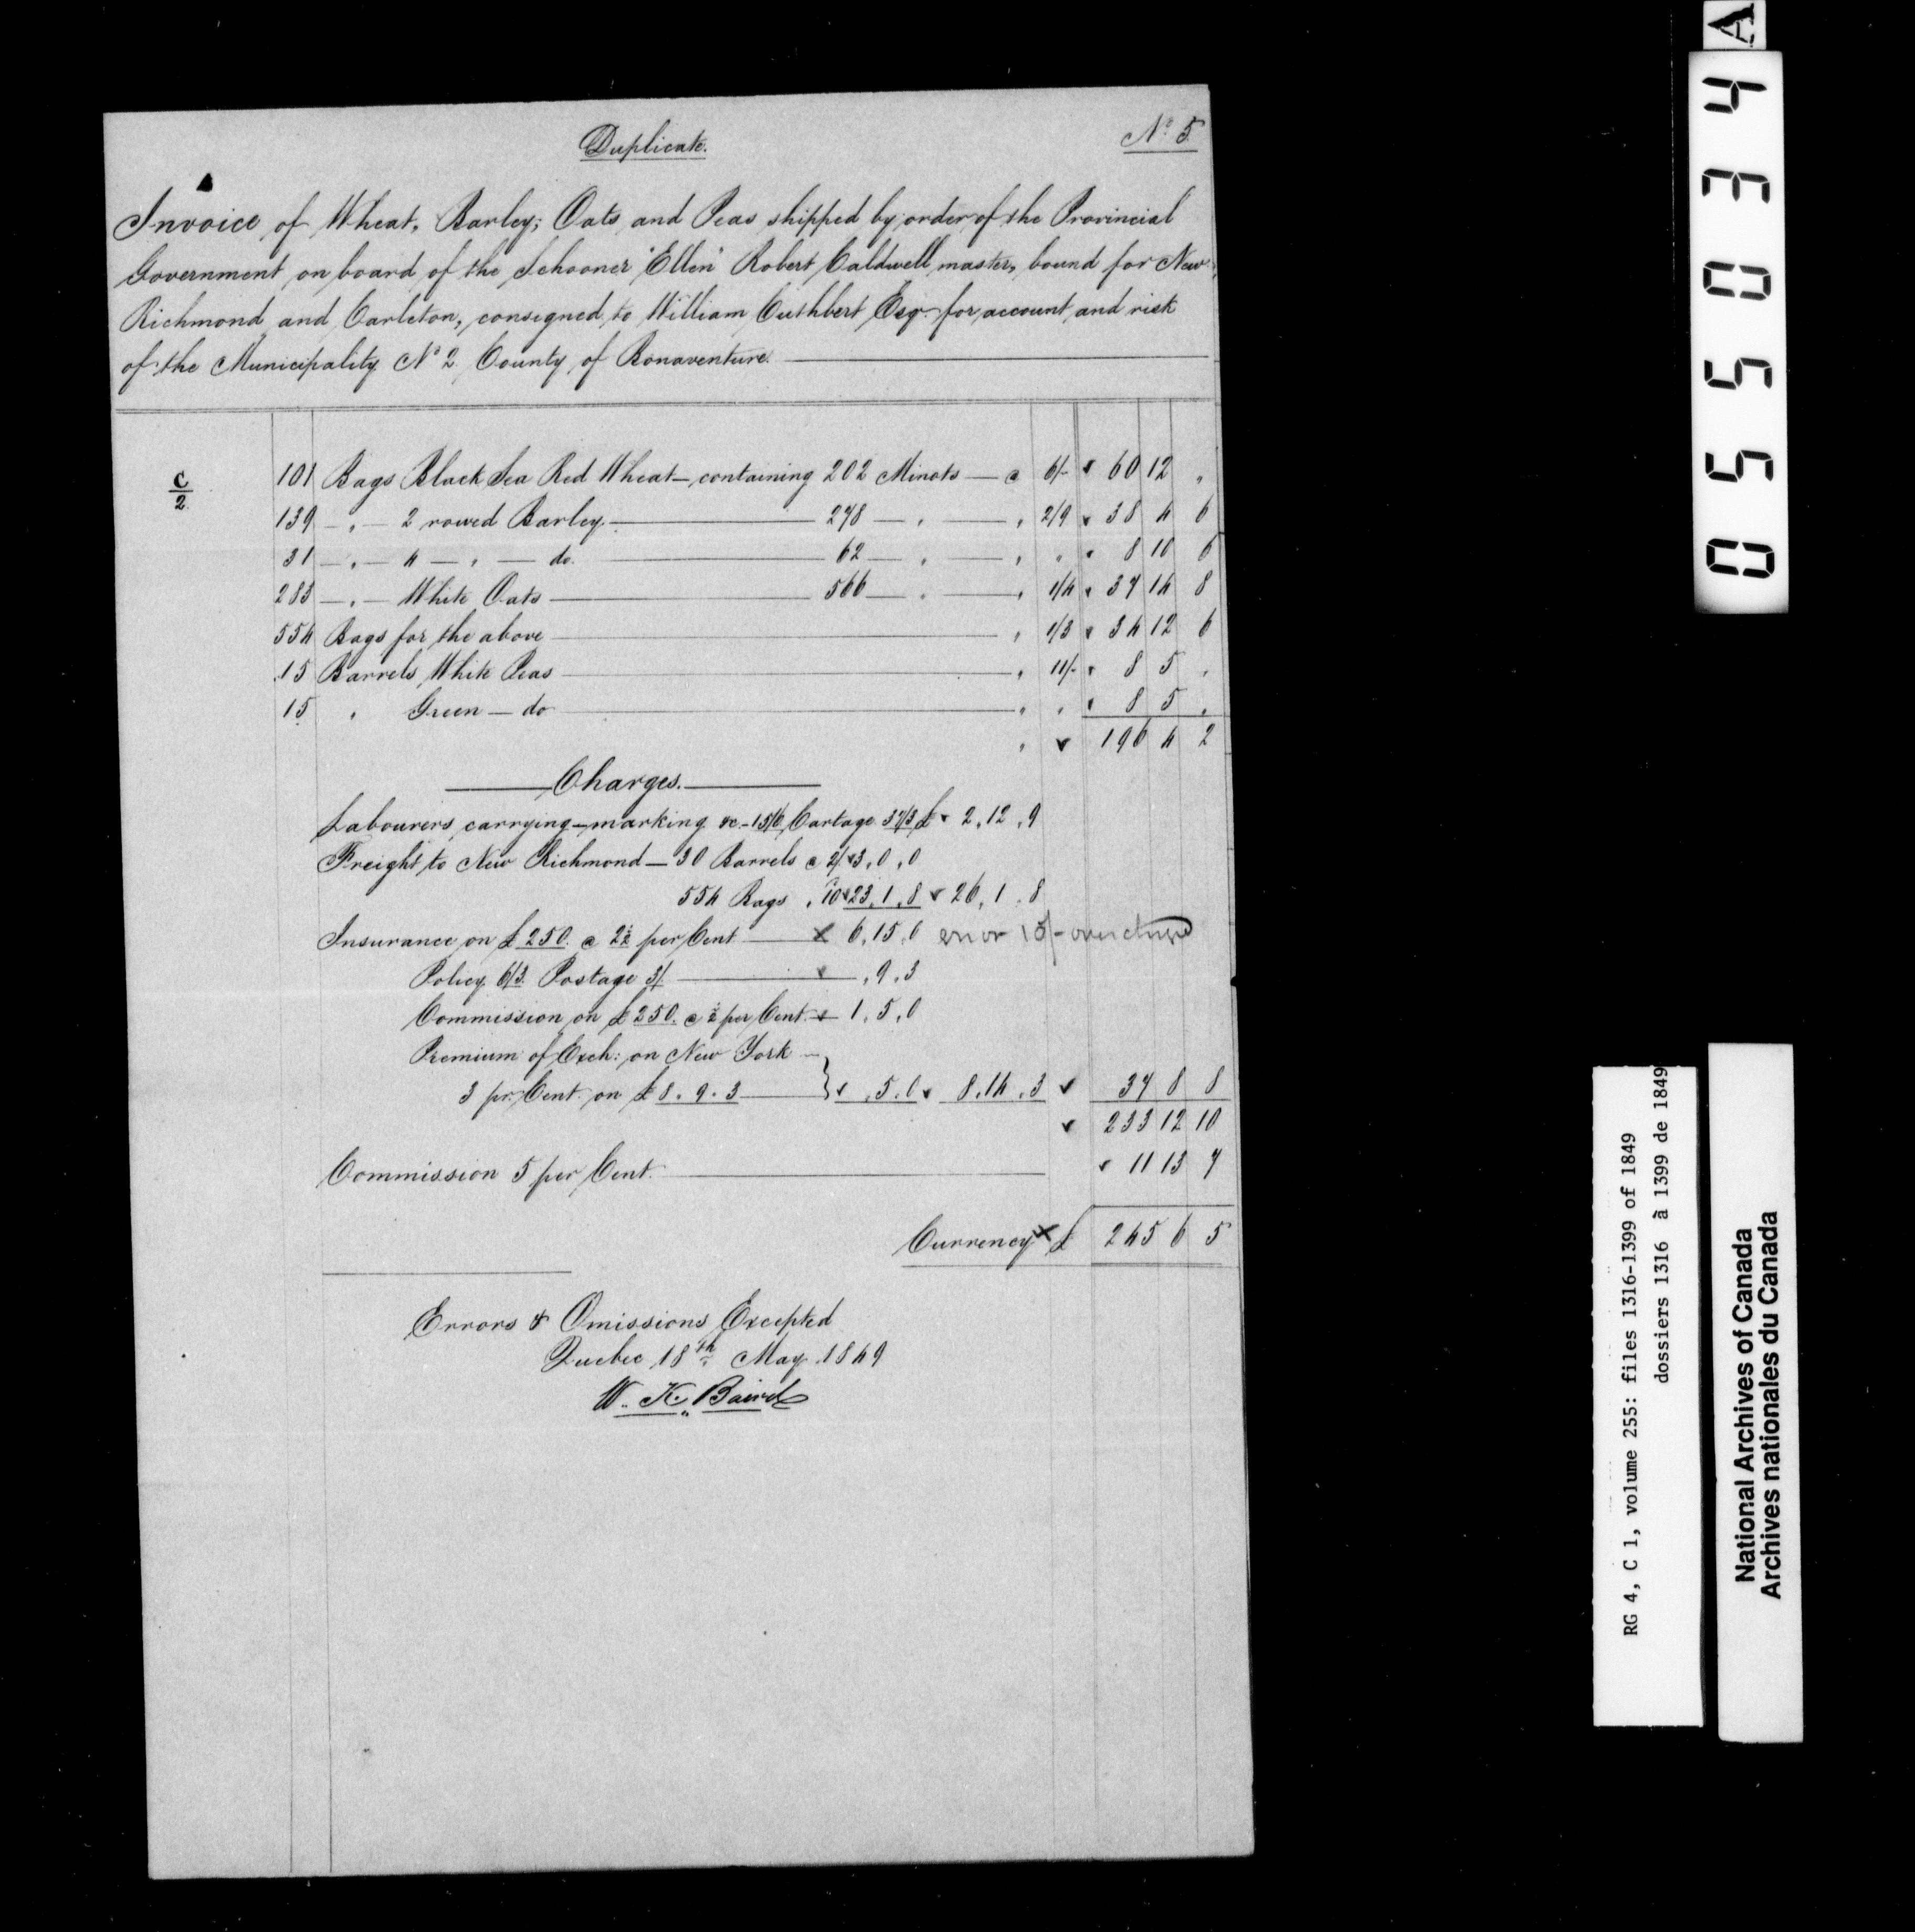 Duplicate.
No 5
Invoice of Wheat, Barley, Oats and Peas shipped by order of the Provincial
Government on board of the Schooner "Ellen" Robert Caldwell master, bound for New
Richmond and Carleton, consigned to William Cuthbert Esqr. for account and risk
of the Municipality No 2 County of Bonaventure.
C/2
101 Bags Black Sea Red Wheat — containing 202 Minots — @ 6/- 60 12 "
139 — " — 2 rowed Barley — 278 — " — " 2/9 38 4 6
31 — " — 4 — " — do. — 62 — " — " " 8 10 6
283 — " — White Oats — 566 — " — " 1/4 37 14 8
554 Bags for the above — " 1/3 34 12 6
15 Barrels White Peas — " 11/- 8 5 "
15 " Green — do — " " 8 5 "
" 196 4 2
Charges.
Labourers carrying — marking &c - 15/6 Cartage 37/3 £ 2,12,9
Freight to New Richmond — 30 Barrels @ 2/ 3,0,0
554 Bags " 10 23,1,8 26,1,8
Insurance on £250. @ 2½ per Cent — X 6,15,0 error 10/- overcharged
Policy 6/3 Postage 3/ — ,9,3
Commission on £250. @ ½ per Cent. — 1,5,0
Premium of Exch: on New York —
3 pr. Cent. on £8.9.3 — } ,5,0 8,14,3 37 8 8
233 12 10
Commission 5 per Cent. — 11 13 7
Currency X £ 245 6 5
Errors & Omissions Excepted
Quebec 18th May 1849
W. K. Baird
A
05 5034
RG 4, C 1, volume 255: files 1316-1399 of 1849
dossiers 1316 à 1399 de 1849
National Archives of Canada
Archives nationales du Canada